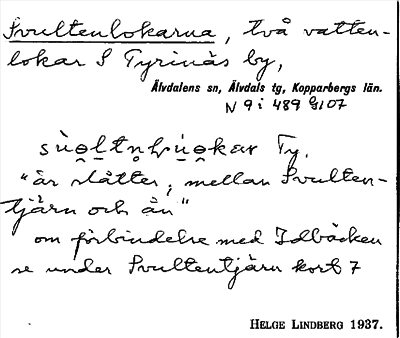 Svultenlokarna, två vatten-
lokar S Tyrinäs by,
Älvdalens sn, Älvdals tg, Kopparbergs län.
N 9 i 489 81 07
Ty.
"är slåtter, mellan Svulten-
tjärn och ån"
om förbindelse med Idbäcken
se under Svultentjärn kort 7
HELGE LINDBERG 1937.